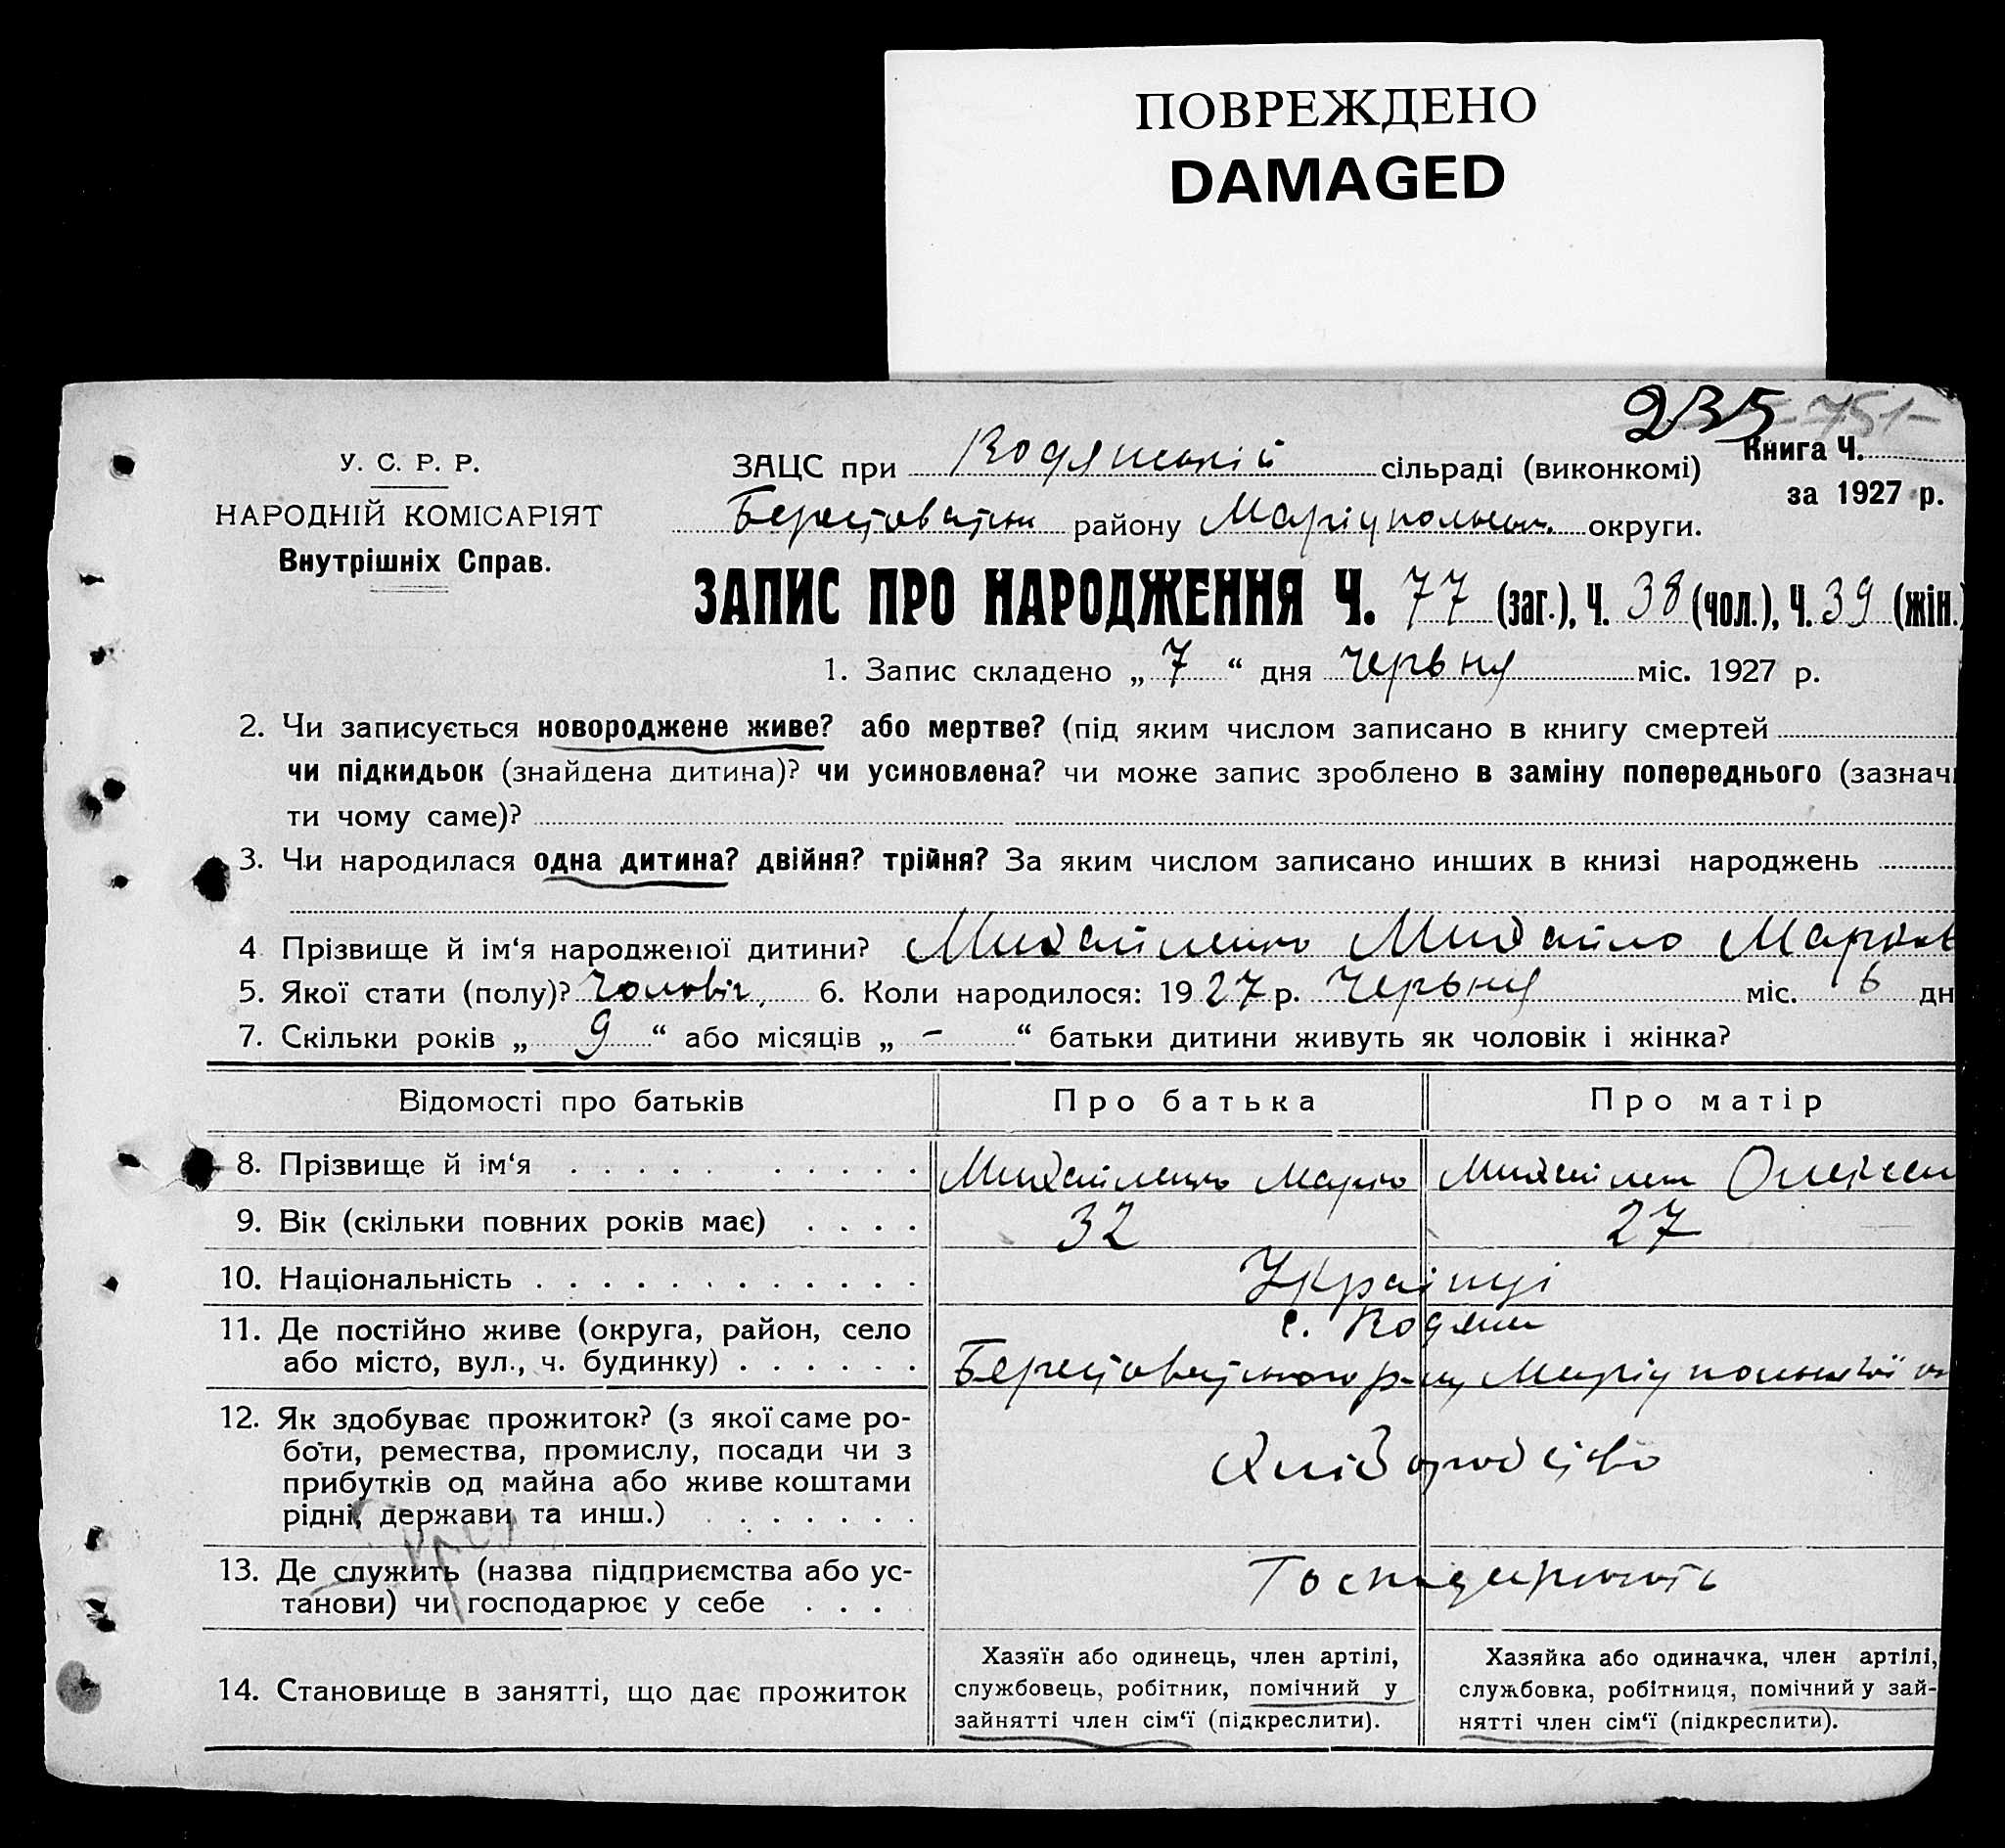 ПОВРЕЖДЕНО
DAMAGED
235 751
У. С. Р. Р.
НАРОДНІЙ КОМІСАРІЯТ
Внутрішніх Справ.
ЗАЦС при Водянській сільраді (виконкомі)
Книга Ч.
за 1927 р.
Берестоватськ району Маріупольськ. округи.
ЗАПИС ПРО НАРОДЖЕННЯ Ч. 77 (заг.), Ч. 38 (чол.), Ч. 39 (жін.)
1. Запис складено „ 7 “ дня Червня міс. 1927 р.
2. Чи записується новороджене живе? або мертве? (під яким числом записано в книгу смертей
чи підкидьок (знайдена дитина)? чи усиновлена? чи може запис зроблено в заміну попереднього (зазначи
ти чому саме)?
3. Чи народилася одна дитина? двійня? трійня? За яким числом записано инших в книзі народжень
4 Прізвище й ім‘я народженої дитини? Михайленко Михайло Марков
5. Якої стати (полу)? Чоловіч. 6. Коли народилося: 1927 р. Червня міс. 6 дн
7. Скільки років „ 9 “ або місяців „ - “ батьки дитини живуть як чоловік і жінка?
Відомості про батьків Про батька Про матір
8. Прізвище й ім‘я . . . . . . . . . . Михайленко Марко Михайленк
9. Вік (скільки повних років має) . . . . 32 27
10. Національність . . . . . . . . . . . . Українці
11. Де постійно живе (округа, район, село с. Водяне
або місто, вул., ч. будинку) . . . . . . Берестоватського р-ну Маріупольської ок
12. Як здобуває прожиток? (з якої саме ро-
боти, ремества, промислу, посади чи з
прибутків од майна або живе коштами
рідні, держави та инш.) . . . . . . . Хліборобство
13. Де служить (назва підприємства або ус-
танови) чи господарює у себе . . . . Господарюють
14. Становище в занятті, що дає прожиток
Хазяїн або одинець, член артілі,
службовець, робітник, помічний у
зайнятті член сім‘ї (підкреслити).
Хазяйка або одиначка, член артілі,
службовка, робітниця, помічний у зай-
нятті член сім‘ї (підкреслити).